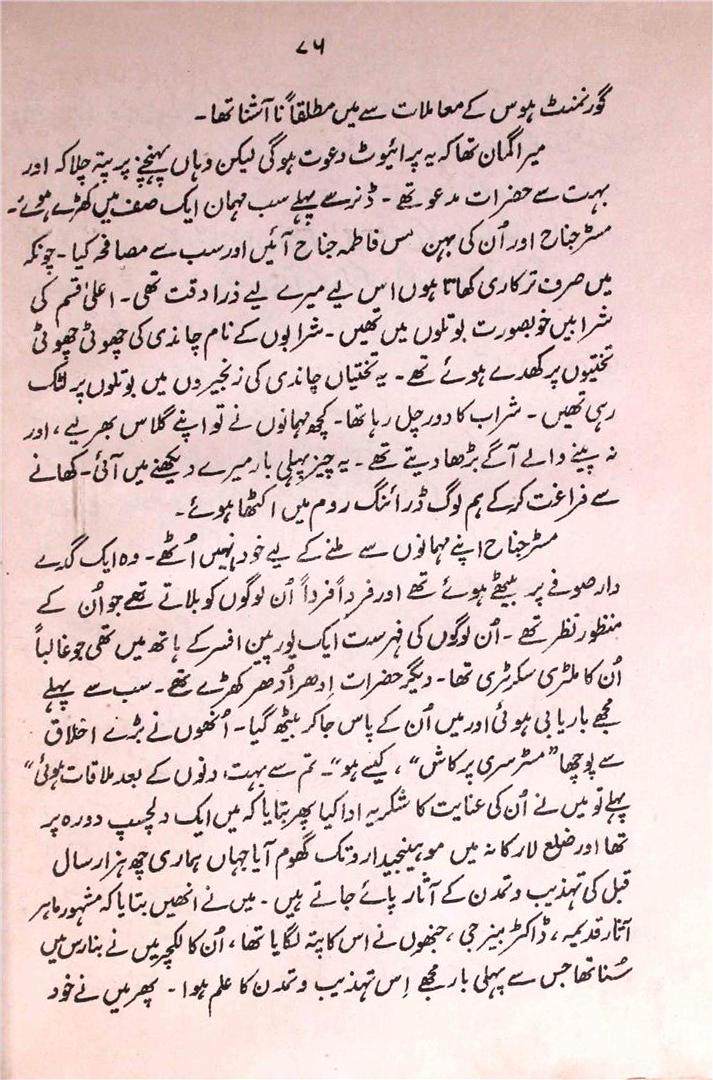 ۷۵
گورنمنٹ ہوس کے معاملات سے میں مطلقاً نا آشنا تھا۔
میرا گمان تھا کہ یہ پرائیوٹ دعوت ہوگی لیکن وہاں پہنچنے پر پتہ چلا کہ اور
بہت سے حضرات مدعو تھے۔ ڈنر سے پہلے سب مہمان ایک صف میں کھڑے ہوئے۔
مسٹر جناح اور اُن کی بہن مس فاطمہ جناح آئیں اور سب سے مصافحہ کیا۔ چونکہ
میں صرف ترکاری کھاتا ہوں اس لیے میرے لیے ذرا دقت تھی۔ اعلیٰ قسم کی
شرابیں خوبصورت بوتلوں میں تھیں۔ شرابوں کے نام چاندی کی چھوٹی چھوٹی
تختیوں پر کھدے ہوئے تھے۔ یہ تختیاں چاندی کی زنجیروں میں بوتلوں پر لٹک
رہی تھیں۔ شراب کا دور چل رہا تھا۔ کچھ مہمانوں نے تو اپنے گلاس بھر لیے، اور
نہ پینے والے آگے بڑھا دیتے تھے۔ یہ چیز پہلی بار میرے دیکھنے میں آئی۔ کھانے
سے فراغت کرکے ہم لوگ ڈرائنگ روم میں اکٹھا ہوئے۔
مسٹر جناح اپنے مہمانوں سے ملنے کے لیے خود نہیں اُٹھے۔ وہ ایک گدے
دار صوفے پر بیٹھے ہوئے تھے اور فرداً فرداً اُن لوگوں کو بلاتے تھے جو اُن کے
منظور نظر تھے۔ اُن لوگوں کی فہرست ایک یورپین افسر کے ہاتھ میں تھی جو غالباً
اُن کا ملٹری سکرٹری تھا۔ دیگر حضرات اِدھر اُدھر کھڑے تھے۔ سب سے پہلے
مجھے باریابی ہوئی اور میں اُن کے پاس جا کر بیٹھ گیا۔ اُنھوں نے بڑے اخلاق
سے پوچھا ”مسٹر سری پرکاش“، کیسے ہو“۔ تم سے بہت دنوں کے بعد ملاقات ہوئی“
پہلے تو میں نے اُن کی عنایت کا شکریہ ادا کیا پھر بتایا کہ میں ایک دلچسپ دورہ پر
تھا اور ضلع لارکانہ میں موہینجیدارو تک گھوم آیا جہاں ہماری چھ ہزار سال
قبل کی تہذیب و تمدن کے آثار پائے جاتے ہیں۔ میں نے انھیں بتایا کہ مشہور ماہر
آثار قدیمہ، ڈاکٹر بینرجی، جنھوں نے اس کا پتہ لگایا تھا، اُن کا لکچر میں نے بنارس میں
سُنا تھا جس سے پہلی بار مجھے اِس تہذیب و تمدن کا علم ہوا۔ پھر میں نے خود